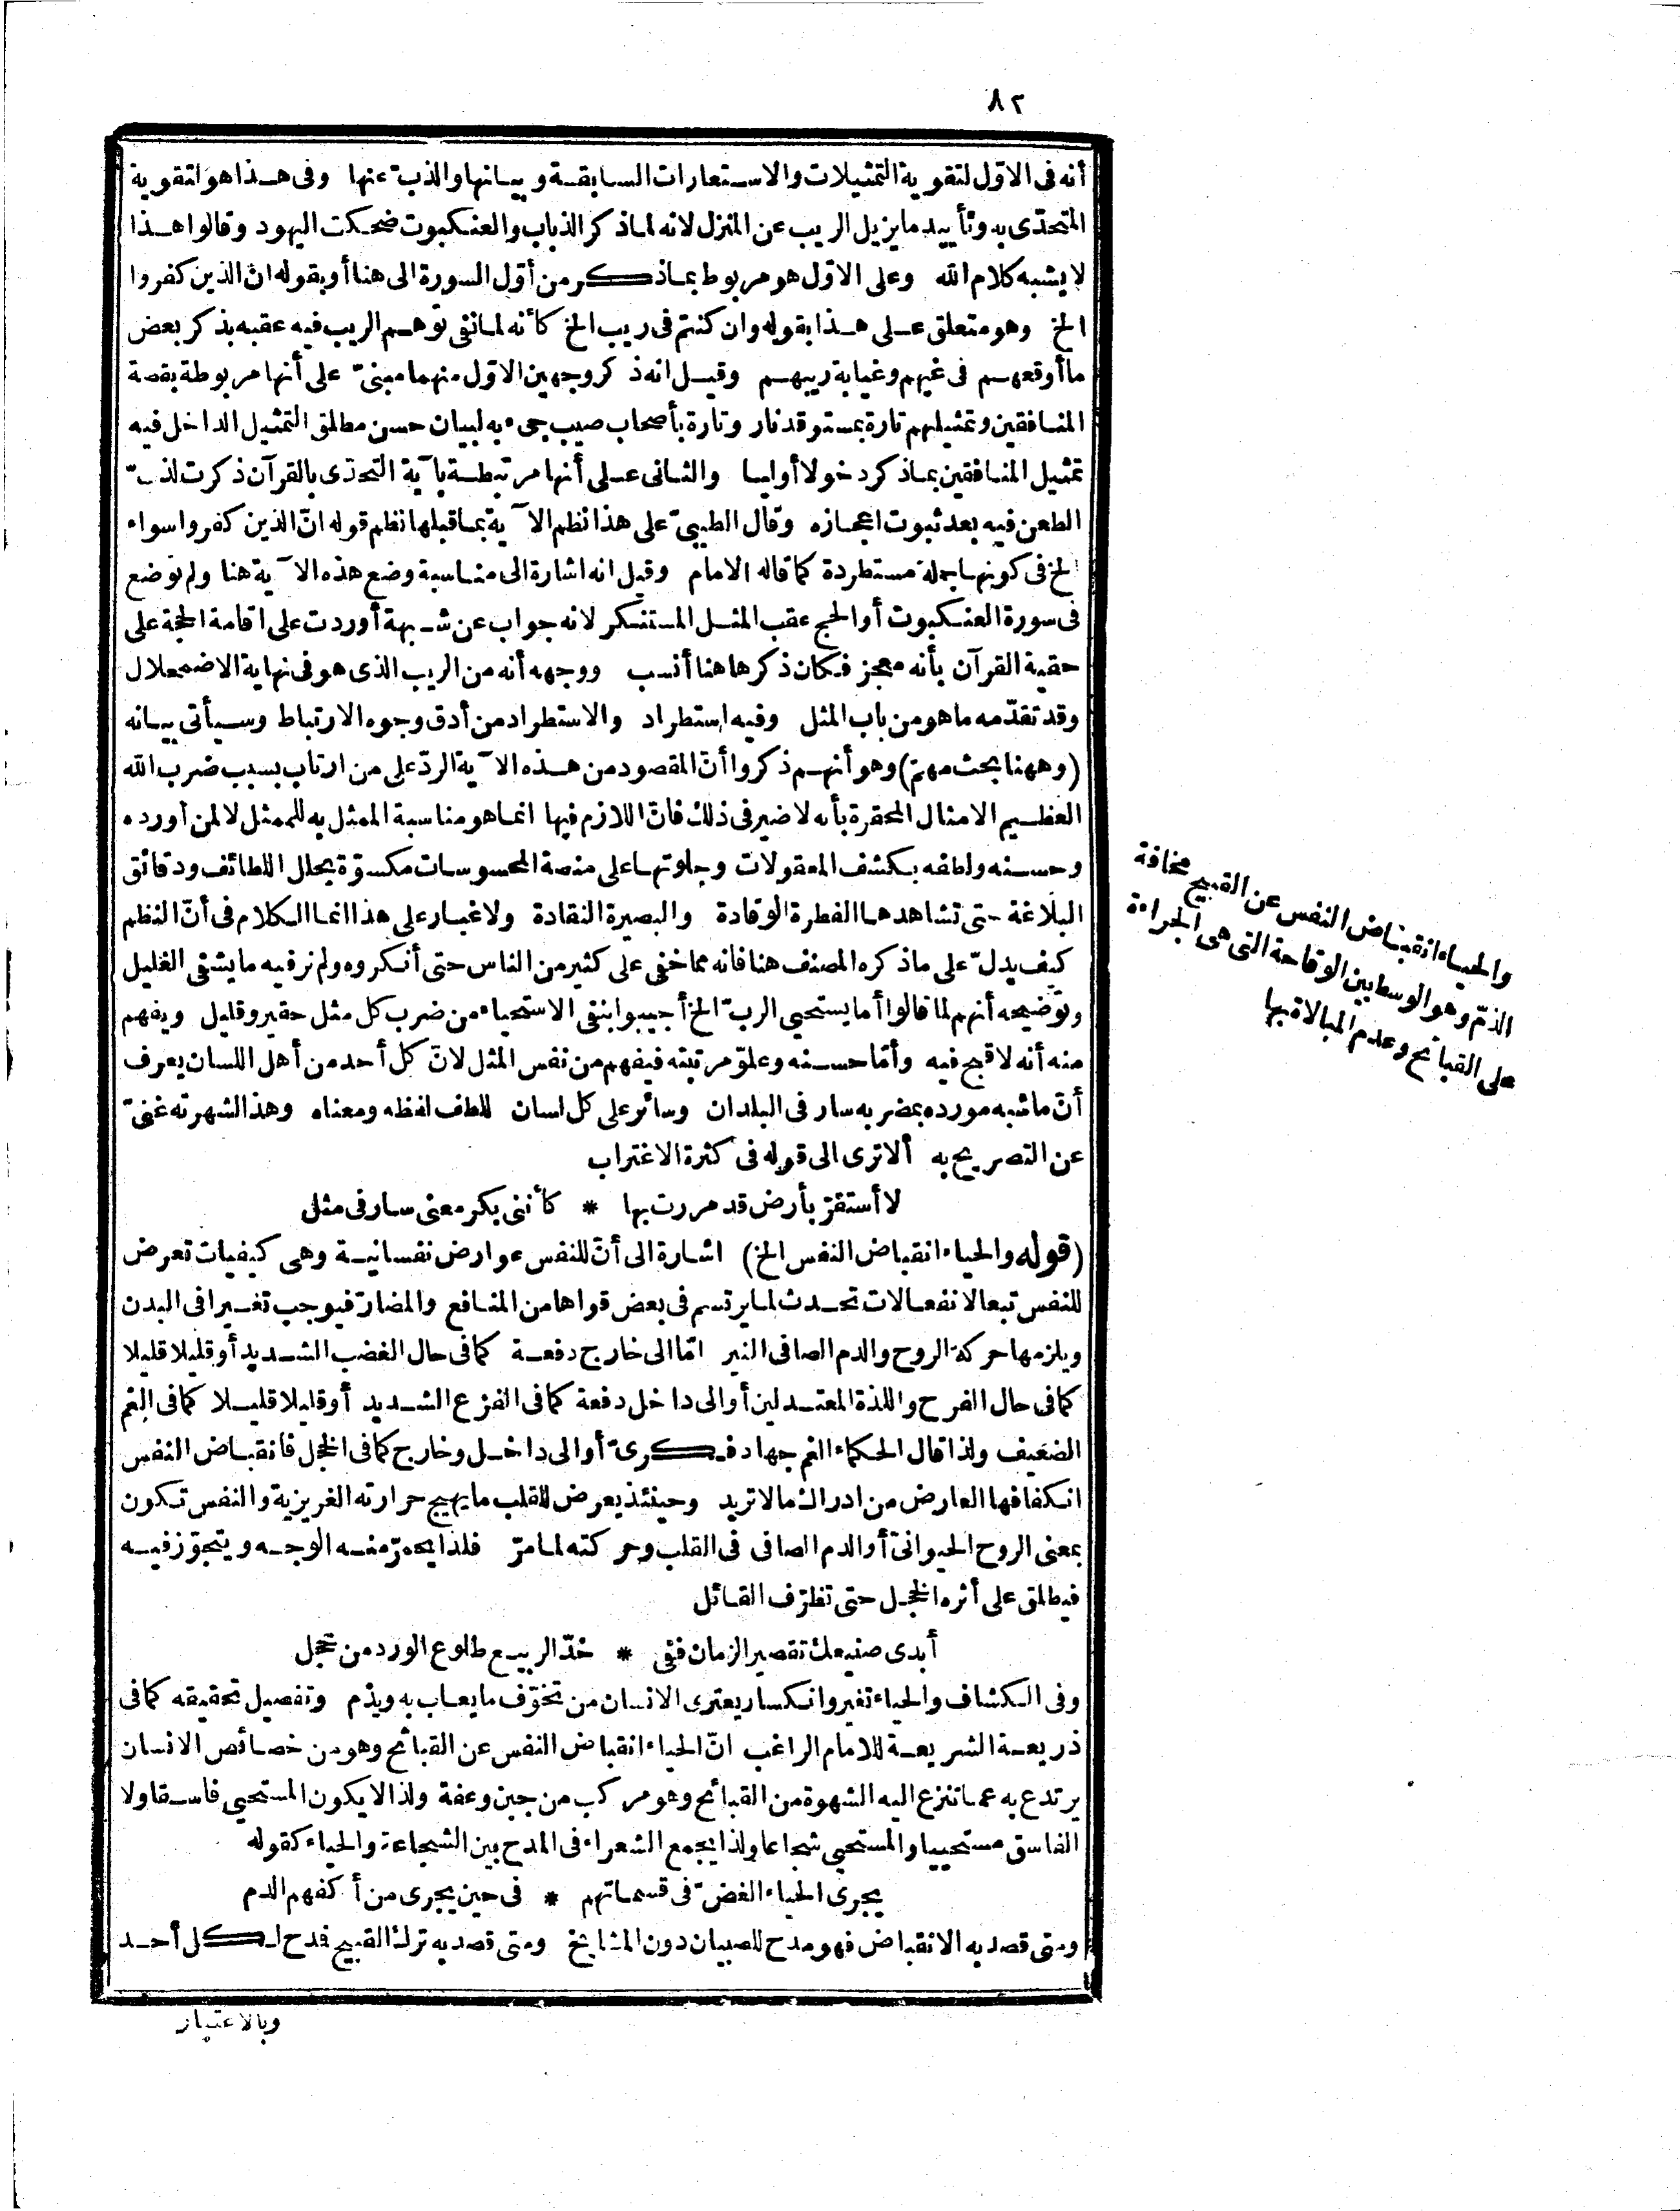 ٨٢
أنه فى الاوّل لتقوية التمثيلات والاستعارات السابقة وبيانها والذبّ عنها وفى هذا هو لتقوية
المتحدّى به وتأييد ما يزيل الريب عن المنزل لانه لما ذكر الذباب والعنكبوت ضحكت اليهود وقالوا هذا
لا يشبه كلام الله وعلى الاوّل هو مربوط بما ذكر من أوّل السورة الى هنا أو بقوله انّ الذين كفروا
الخ وهو متعلق على هذا بقوله وان كنتم فى ريب الخ كأنه لما نفى توهم الريب فيه عقبه بذكر بعض
ما أوقعهم فى غيهم وغيابة ريبهم وقيل انه ذكر وجهين الاوّل منهما مبنىّ على أنها مربوطة بقصة
المنافقين وتمثيلهم تارة بمستوقد نار وتارة بأصحاب صيب جىء به لبيان حسن مطلق التمثيل الداخل فيه
تمثيل المنافقين بما ذكر دخولا أوليا والثانى على أنها مرتبطة بآية التحدّى بالقرآن ذكرت لذبّ
الطعن فيه بعد ثبوت اعجازه وقال الطيبىّ على هذا نظم الآية بما قبلها نظم قوله انّ الذين كفروا سواء
الخ فى كونها جملة مستطردة كما قاله الامام وقيل انه اشارة الى مناسبة وضع هذه الآية هنا ولم توضع
فى سورة العنكبوت أو الحج عقب المثل المستنكر لانه جواب عن شبهة أوردت على اقامة الحجة على
حقية القرآن بأنه معجز فكان ذكرها هنا أنسب ووجهه أنه من الريب الذى هو فى نهاية الاضمحلال
وقد تقدّمه ما هو من باب المثل وفيه استطراد والاستطراد من أدق وجوه الارتباط وسيأتى بيانه
(وههنا بحث مهمّ) وهو أنهم ذكروا أنّ المقصود من هذه الآية الردّ على من ارتاب بسبب ضرب الله
العظيم الامثال المحقرة بأنه لا ضير فى ذلك فانّ اللازم فيها انما هو مناسبة الممثل به للممثل لا لمن أورده
وحسنه ولطفه بكشف المعقولات وجلوتها على منصة المحسوسات مكسوّة بحلل اللطائف ودقائق
البلاغة حتى تشاهدها الفطرة الوقادة والبصيرة النقادة ولا غبار على هذا انما الكلام فى أنّ النظم
كيف يدلّ على ما ذكره المصنف هنا فانه مما خفى على كثير من الناس حتى أنكروه ولم نر فيه ما يشفى الغليل
وتوضيحه أنهم لما قالوا أما يستحيى الربّ الخ أجيبوا بنفى الاستحياء من ضرب كل مثل حقير وقليل ويفهم
منه أنه لا قبح فيه وأمّا حسنه وعلوّ مرتبته فيفهم من نفس المثل لانّ كل أحد من أهل اللسان يعرف
أنّ ما شبه مورده بمضربه سار فى البلدان وسائر على كل لسان للطف لفظه ومعناه وهذا لشهرته غنىّ
عن التصريح به ألا ترى الى قوله فى كثرة الاغتراب
لا أستقرّ بأرض قد مررت بها * كأننى بكر معنى سار فى مثل
(قوله والحياء انقباض النفس الخ) اشارة الى أنّ للنفس عوارض نفسانية وهى كيفيات تعرض
للنفس تبعا لانفعالات تحدث لما يرتسم فى بعض قواها من المنافع والمضارّ فيوجب تغييرا فى البدن
ويلزمها حركة الروح والدم الصافى النير امّا الى خارج دفعة كما فى حال الغضب الشديد أو قليلا قليلا
كما فى حال الفرح واللذة المعتدلين أو الى داخل دفعة كما فى الفزع الشديد أو قليلا قليلا كما فى الغم
الضعيف ولذا قال الحكماء الغم جهاد فكرىّ أو الى داخل وخارج كما فى الخجل فانقباض النفس
انكفافها العارض من ادراك ما لا تريد وحينئذ يعرض للقلب ما يهيج حرارته الغريزية والنفس تكون
بمعنى الروح الحيوانىّ أو الدم الصافى فى القلب وحركته لما مرّ فلذا يحمرّ منه الوجه ويتجوّز فيه
فيطلق على أثره الخجل حتى تظرّف القائل
أبدى صنيعك تقصير الزمان ففى * خدّ الربيع طلوع الورد من خجل
وفى الكشاف والحياء تغير وانكسار يعترى الانسان من تخوّف ما يعاب به ويذم وتفصيل تحقيقه كما فى
ذريعة الشريعة للامام الراغب انّ الحياء انقباض النفس عن القبائح وهو من خصائص الانسان
يرتدع به عما تنزع اليه الشهوة من القبائح وهو مركب من جبن وعفة ولذا لا يكون المستحيى فاسقا ولا
الفاسق مستحييا والمستحيى شجاعا ولذا يجمع الشعراء فى المدح بين الشجاعة والحياء كقوله
يجرى الحياء الغضّ فى قسماتهم * فى حين يجرى من أكفهم الدم
ومتى قصد به الانقباض فهو مدح للصبيان دون المشايخ ومتى قصد به ترك القبيح فدح لكل أحد
وبالاعتبار
والحياء انقباض النفس عن القبيح مخافة
الذمّ وهو الوسط بين الوقاحة التى هى الجراءة
على القبائح وعدم المبالاة بها